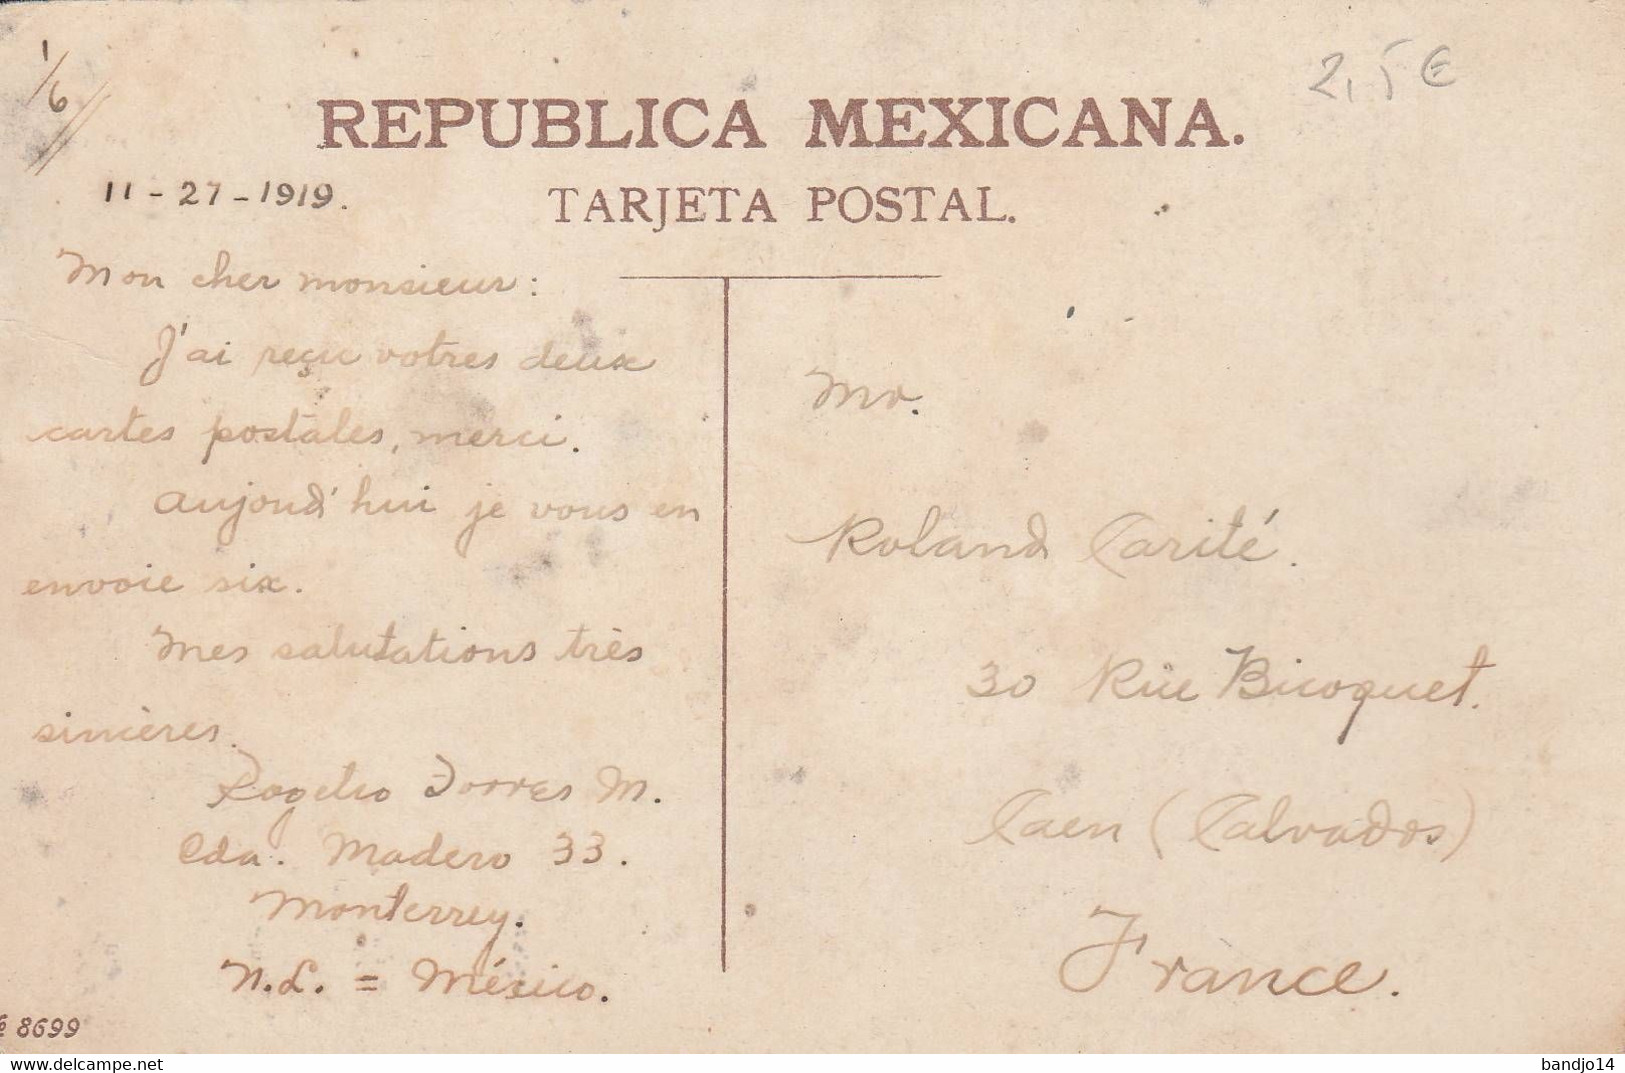 1/6
2,5 €
REPUBLICA MEXICANA.
TARJETA POSTAL.
11-27-1919.
Mon cher monsieur:
J'ai reçu votres deux
cartes postales, merci.
Aujourd'hui je vous en
envoie six.
Mes salutations très
sincères.
Rogelio Torres M.
Cda. Madero 33.
Monterrey.
N.L. = México.
Mr.
Roland Carité.
30 Rue Bicoquet.
Caen (Calvados)
France.
8699
www.delcampe.net
bandjo14